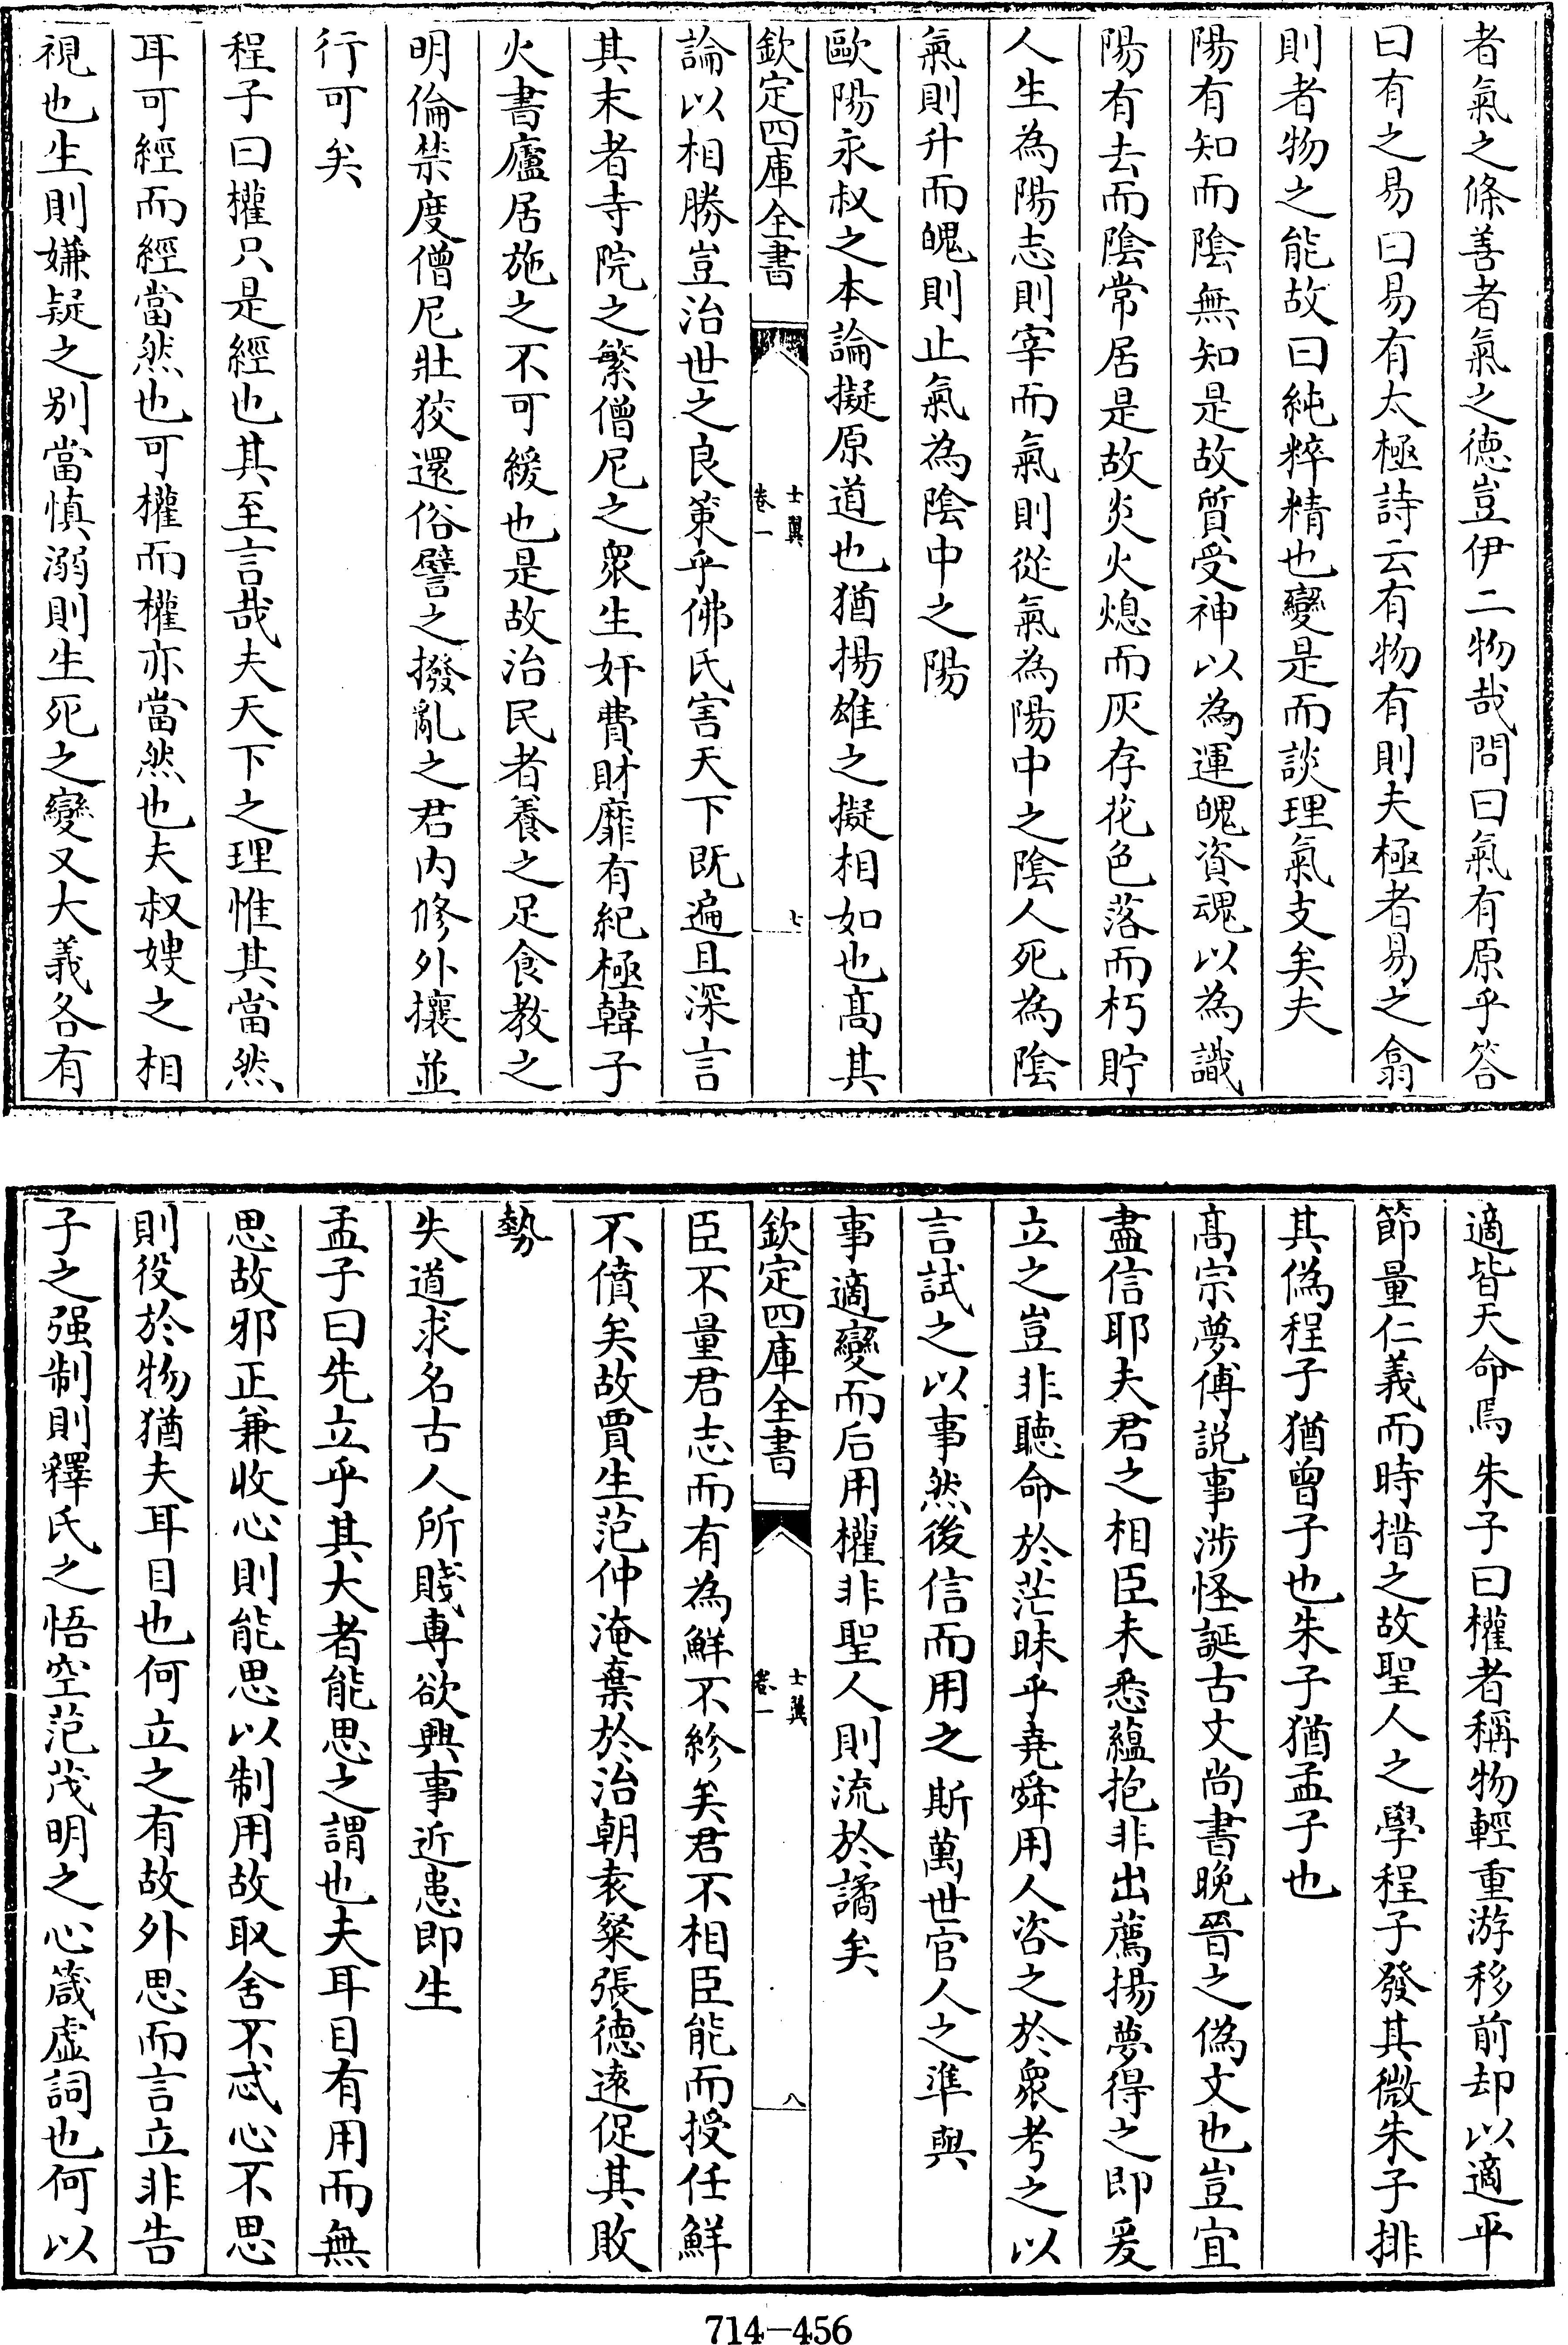 者氣之條善者氣之德豈伊二物哉問曰氣有原乎答
曰有之易曰易有太極詩云有物有則夫極者易之翕
則者物之能故曰純粹精也變是而談理氣支矣夫
陽有知而陰無知是故質受神以為運魄資魂以為識
陽有去而陰常居是故炎火熄而灰存花色落而朽貯
人生為陽志則宰而氣則從氣為陽中之陰人死為陰
氣則升而魄則止氣為陰中之陽
歐陽永叔之本論擬原道也猶揚雄之擬相如也髙其
欽定四庫全書
士翼
卷一
七
論以相勝豈治世之良策乎佛氏害天下既遍且深言
其末者寺院之繁僧尼之衆生奸費財靡有紀極韓子
火書廬居施之不可緩也是故治民者養之足食教之
明倫禁度僧尼壯狡還俗譬之撥亂之君内修外攘並
行可矣
程子曰權只是經也其至言哉夫天下之理惟其當然
耳可經而經當然也可權而權亦當然也夫叔嫂之相
視也生則嫌疑之别當慎溺則生死之變又大義各有
適皆天命焉朱子曰權者稱物輕重游移前却以適平
節量仁義而時措之故聖人之學程子發其微朱子排
其偽程子猶曾子也朱子猶孟子也
髙宗夢傅説事涉怪誕古文尚書晚晉之偽文也豈宜
盡信耶夫君之相臣未悉蘊抱非出薦揚夢得之即爰
立之豈非聽命於茫昧乎堯舜用人咨之於衆考之以
言試之以事然後信而用之斯萬世官人之準與
事適變而后用權非聖人則流於譎矣
欽定四庫全書
士翼
卷一
八
臣不量君志而有為鮮不紾矣君不相臣能而授任鮮
不僨矣故賈生范仲淹棄於治朝袁粲張德遠促其敗
勢
失道求名古人所賤専欲興事近患即生
孟子曰先立乎其大者能思之謂也夫耳目有用而無
思故邪正兼收心則能思以制用故取舍不忒心不思
則役於物猶夫耳目也何立之有故外思而言立非告
子之强制則釋氏之悟空范茂明之心箴虛詞也何以
714-456